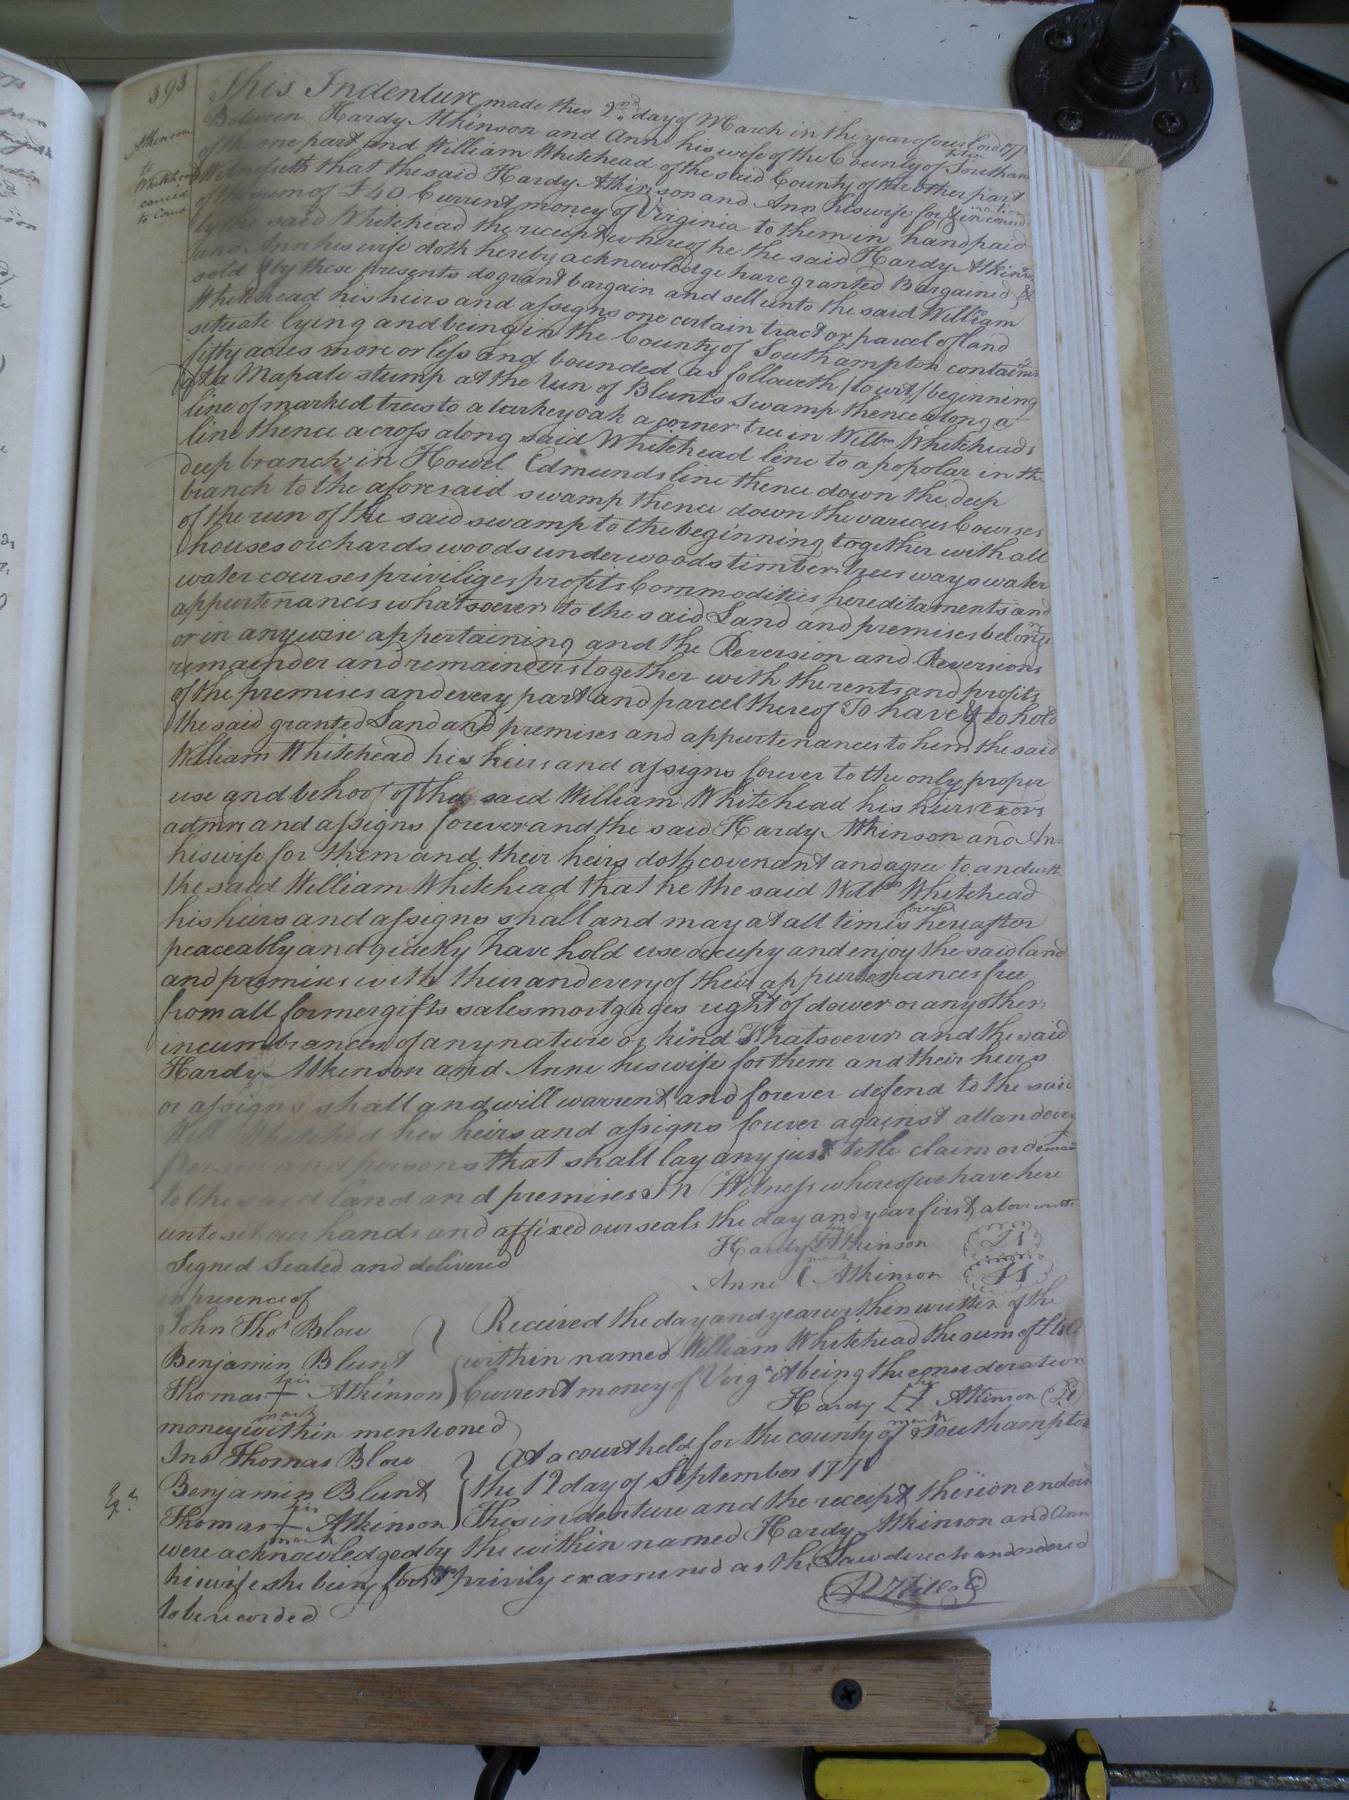 393
Atkinson
to
Whitehead
This Indenture made this 2nd day of March in the year of our Lord
Between Hardy Atkinson and Ann his wife of the County of Southam
of the one part and William Whitehead of the said County of the other part
Witnesseth that the said Hardy Atkinson and Ann his wife for & in consid
of the sum of £40 Current money of Virginia to them in hand paid
by the said Whitehead the receipt whereof he the said Hardy Atkinson
and Ann his wife doth hereby acknowledge have granted Bargained &
sold & by these presents do grant bargain and sell unto the said William
Whitehead his heirs and assigns one certain tract or parcel of land
situate lying and being in the County of Southampton containg
fifty acres more or less and bounded as followeth (to wit) beginning
at a Mapale stump at the run of Blunts Swamp thence along a
line of marked trees to a turkey oak a corner tree in Willm Whiteheads
line thence across along said Whitehead line to a popolar in the
deep branch in Howel Edmunds line thence down the deep
branch to the aforesaid swamp thence down the various Courses
of the run of the said swamp to the beginning together with all
houses orchards woods underwoods timber trees ways water
water courses priviliges profits Commodities hereditaments and
appurtenances whatsoever to the said Land and premises belong
or in anywise appertaining and the Reversion and Reversions
remainder and remainders together with the rents and profits
of the premises and every part and parcel thereof To have & to hold
the said granted Land and premises and appurtenances to him the said
William Whitehead his heirs and assigns forever to the only proper
use and behoof of the said William Whitehead his heirs exors
admrs and assigns forever and the said Hardy Atkinson and An
his wife for them and their heirs doth covenant and agree to and with
the said William Whitehead that he the said Willm Whitehead
his heirs and assigns shall and may at all times forever hereafter
peaceably and quietly have hold use occupy and enjoy the said land
and premises with their and every of their appurtenances free
from all former gifts sales mortgages right of dower or any other
incumbrances of any nature or kind Whatsoever and the said
Hardy Atkinson and Anne his wife for them and their heirs
or assigns shall and will warrent and forever defend to the said
Will Whitehed his heirs and assigns forever against all and every
person and persons that shall lay any just title claim or demand
to the said land and premises In Witness whereof we have here
unto set our hands and affixed our seals the day and year first above
Signed Sealed and delivered
in presence of
Hardy Atkinson
mark
Anne ( Atkinson
John Thos Blow
Benjamin Blunt
his
Thomas + Atkinson
mark
Received the day and year within written of the
within named William Whitehead the sum of
Current money of Virga it being the consideration
money within mentioned
Hardy Atkinson
mark
Jno Thomas Blow
Benjamin Blunt
his
Thomas + Atkinson
mark
At a court held for the county of Southampton
the 12 day of September
This indenture and the receipt thereon endors
were acknowledged by the within named Hardy Atkinson and Ann
his wife she being first privily examined as the Law directs and ordered
to be recorded